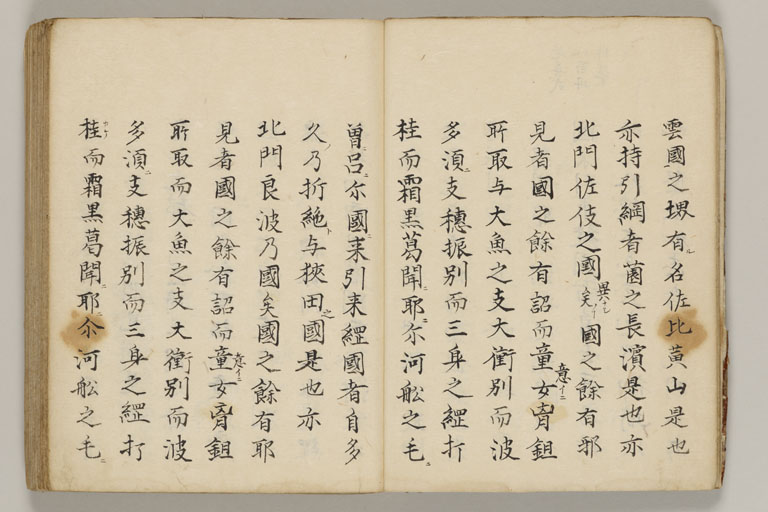 雲國之堺有名佐比賣山是也
亦持引綱者薗之長濱是也亦
北門佐伎之國矣國之餘有耶
見者國之餘有詔而童女胷鉏
所取与大魚之支大衝別而波
多須支穗振別而三身之綱打
桂而霜黒葛聞耶尓河舩之毛
曽呂尓國来引来縄國者自多
久乃折絶与狹田之國是也亦
北門良波乃國矣國之餘有耶
見者國之餘有詔而童女胷鉏
所取而大魚之支大衝別而波
多須支穗振別而三身之綱打
桂而霜黒葛聞耶尓河舩之毛